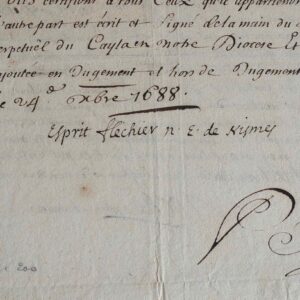 certifions a tous Ceux qu'il appartiend
autre part est écrit et signé de la main du
perpetuel du Cayla en notre Diocese Et
ajoutée en Jugement et hors de Jugement
le 24e 8bre 1688.
Esprit flechier n. E. de Nismes
200